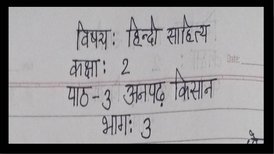 विषय: हिन्दी साहित्य
कक्षा: 2
पाठ-3 अनपढ़ किसान
भाग: 3